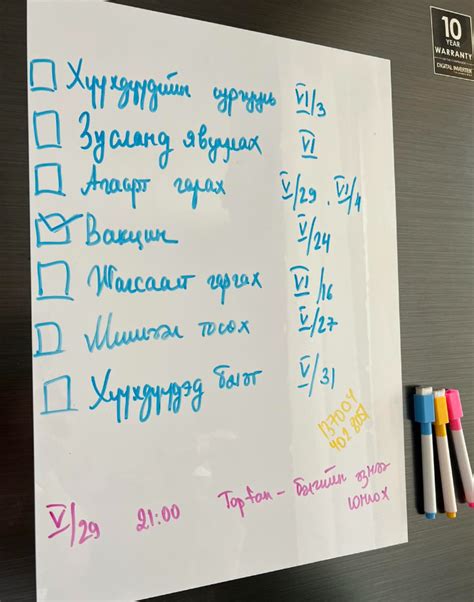 10
YEAR
WARRANTY
DIGITAL INVERTER
Хүүхдүүдийн сургууль VI/3
Зусланд явуулах VI
Агаарт гарах V/29, VI/4
Вакцин V/24
Жагсаалт гаргах VI/16
тосох V/27
Хүүхдүүдэд бэлэг V/31
137004
V/29 21:00 Торгон - бэгийн